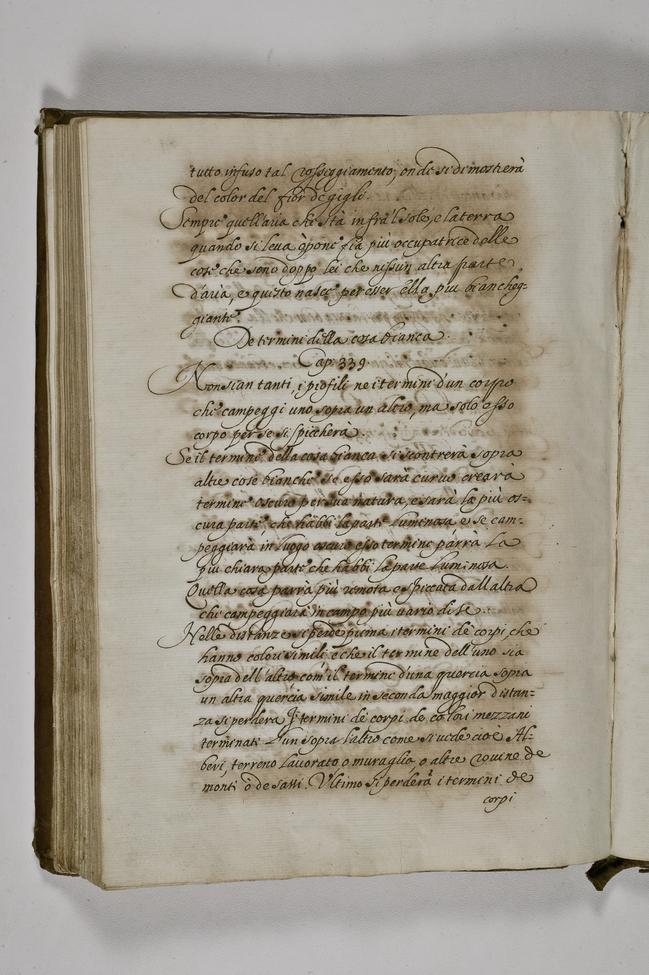 tutto infuso tal rosseggiamento, onde si dimostrerà
del color del fior de gigli.
Sempre quell'aria che stà infrà l sole, e la terra
quando si leva ò pone fia più occupatrice delle
cose che sono doppo lei che nissun altra parte
d'aria, e questo nasce per esser ella più biancheg=
giante.
De termini della cosa bianca.
Cap: 339
Non sian tanti, i profili ne i termini d'un corpo
che campeggi uno sopra un altro, ma solo esso
corpo per se si spicchera.
Se il termine della cosa bianca si scontrerà sopra
altre cose bianche se esso sarà curvo creara
termine oscuro per sua natura, e sarà la più os=
cura parte, che habbi la parte luminosa e se cam=
peggiarà in luogo oscuro esso termine parra la
piu chiara parte che habbi la parte luminosa.
Quella cosa parrà più remota e spiccata dall altra
che campeggiara in campo più vario di se.
Nelle distanze si perde prima i termini de corpi, che
hanno colori simili e che il termine dell'uno sia
sopra dell'altro com' il termine d'una quercia sopra
un altra quercia simile in seconda maggior distan-
za si perdera termini de corpi de colori mezzani
terminati l'un sopra l'altro come si vede cioè Al-
beri, terreno lavorato o muraglia o altre rovine de
monti ò de sassi. Ultimo si perderà i termini de
corpi